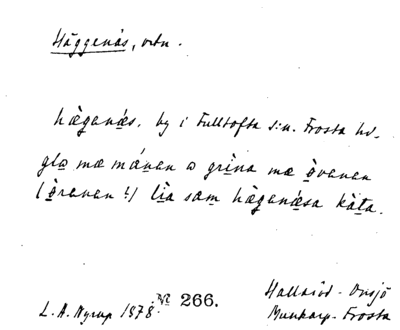 Häggenäs, ortn.
hègenǽs. by i Fulltofta s:n. Frosta hd.
gla̲ mæ mánen a grìna mæ òvenen
(òrenen?) lìa sam hègenǽsa kàta.
L. A. Nyrup 1878. № 266.
Hallaröd - Onsjö
Munkarp. Frosta